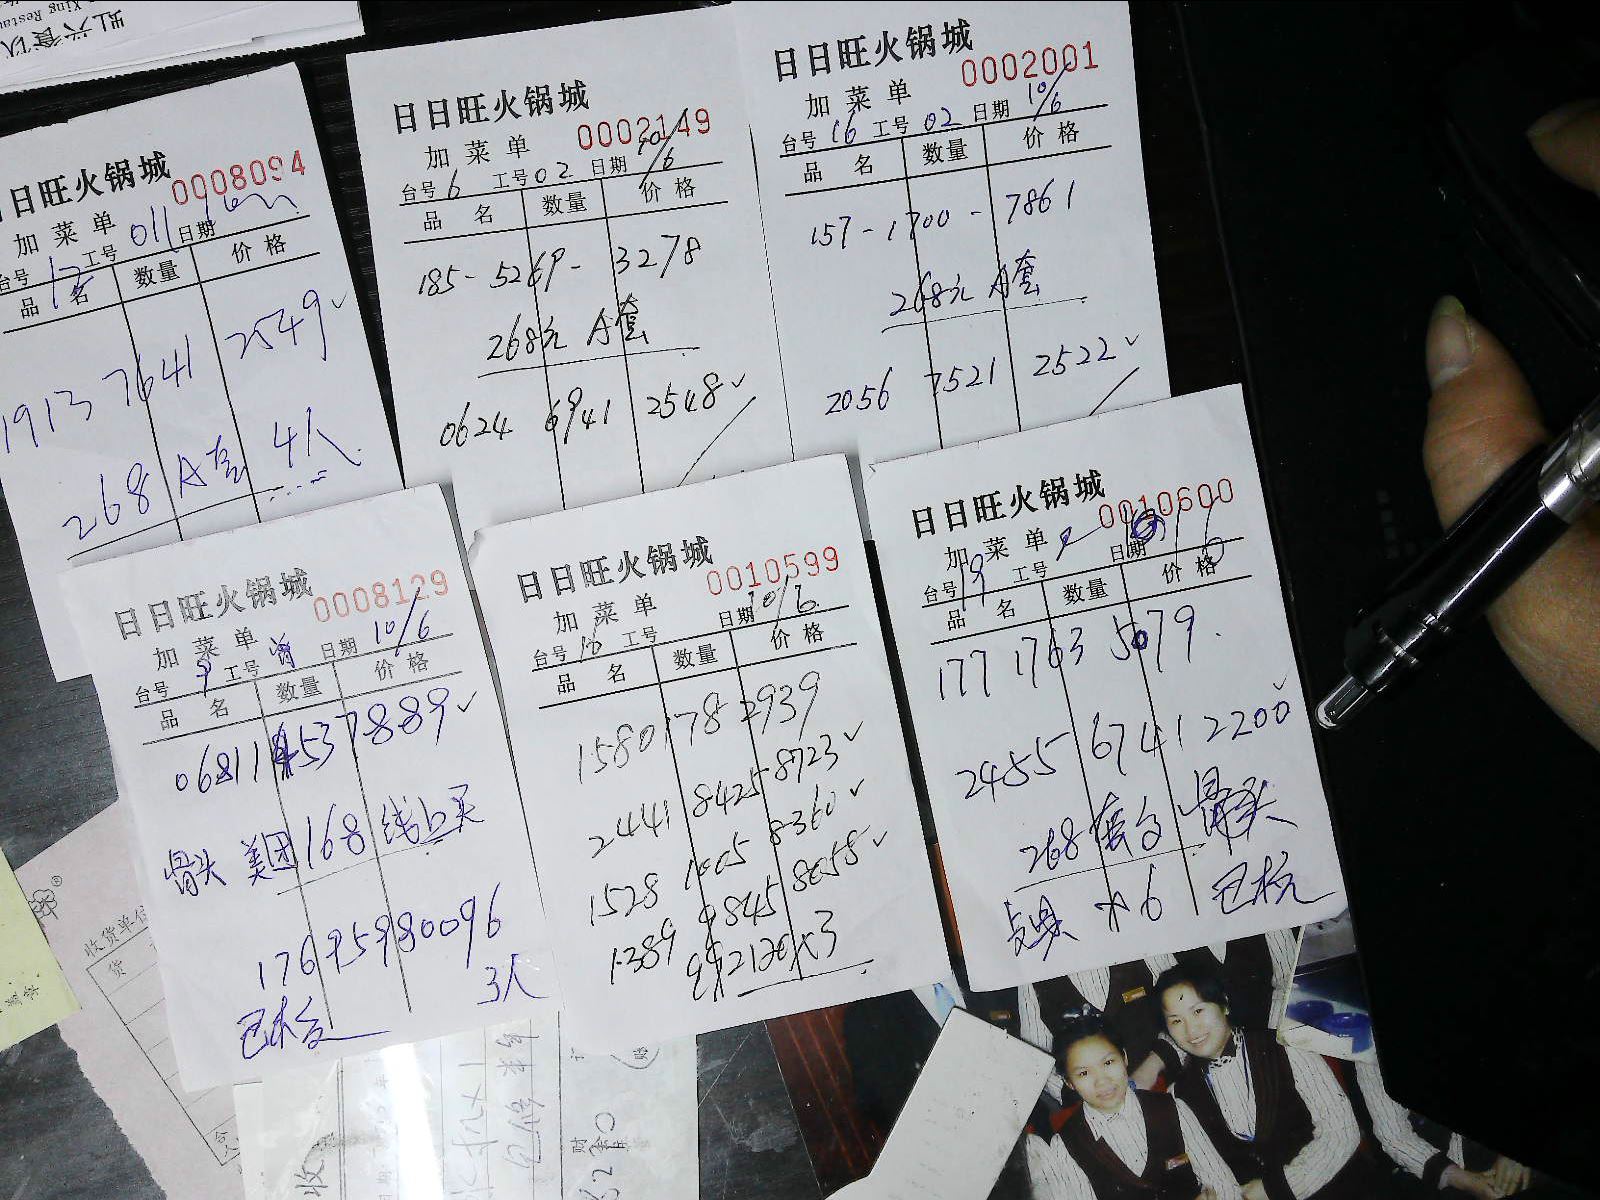 日日旺火锅城
0008094
加菜单
台号 12 工号 011 日期
品名 数量 价格
1913 7641 2549
268 A套 4人
日日旺火锅城
0002149
加菜单
台号 6 工号 02 日期 10/6
品名 数量 价格
185-5269-3278
268元 A套
0624 6941 2548
日日旺火锅城
0002001
加菜单
台号 16 工号 02 日期 10/6
品名 数量 价格
157-1700-7861
268元 A套
2056 7521 2522
日日旺火锅城
0008129
加菜单
台号 工号 日期 10/6
品名 数量 价格
骨头 美团168 线上买
3人
日日旺火锅城
0010599
加菜单
台号 16 工号 日期 10/6
品名 数量 价格
1580 178 2939
2441 8425 8723
1528 1005 8360
1389 9845 8058
日日旺火锅城
0010600
加菜单
台号 19 工号 日期
品名 数量 价格
177 1763 5079
2455 6741 2200
268 套台 骨头
收货单位
货